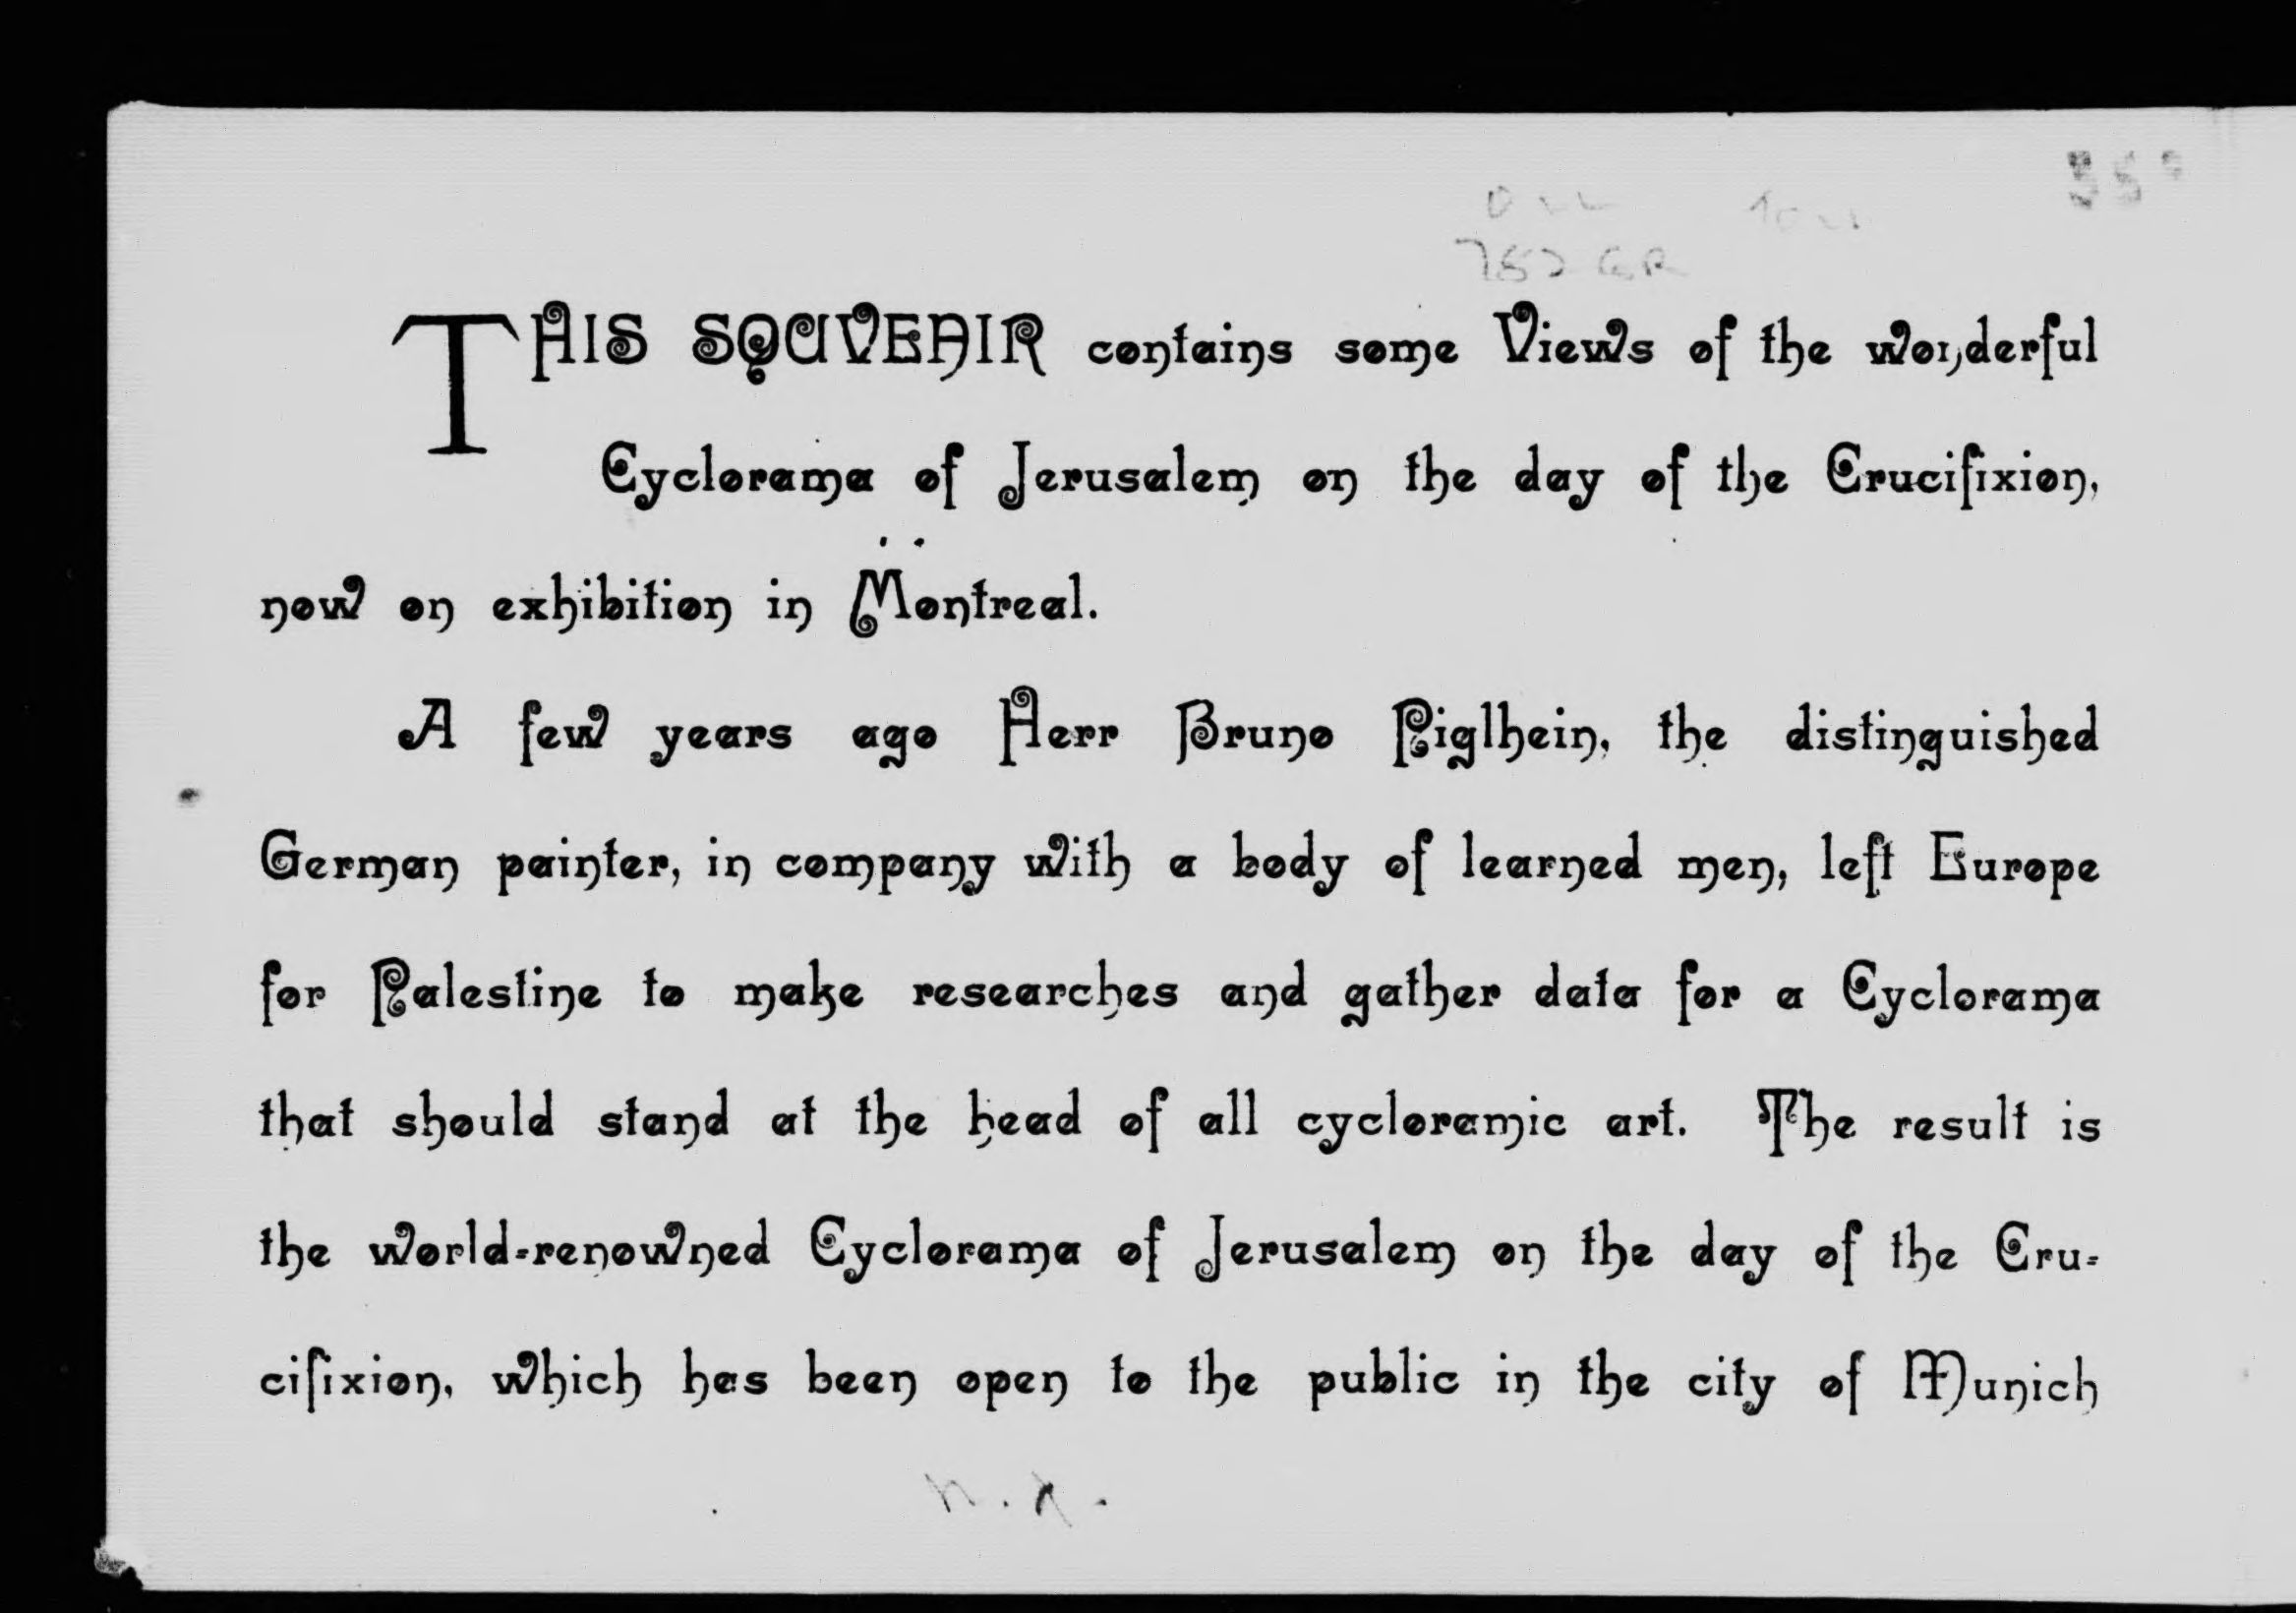 THIS SOUVENIR contains some Views of the wonderful
Cyclorama of Jerusalem on the day of the Crucifixion,
now on exhibition in Montreal.
A few years ago Herr Bruno Piglhein, the distinguished
German painter, in company with a body of learned men, left Europe
for Palestine to make researches and gather data for a Cyclorama
that should stand at the head of all cycloramic art. The result is
the world-renowned Cyclorama of Jerusalem on the day of the Cru-
cifixion, which has been open to the public in the city of Munich